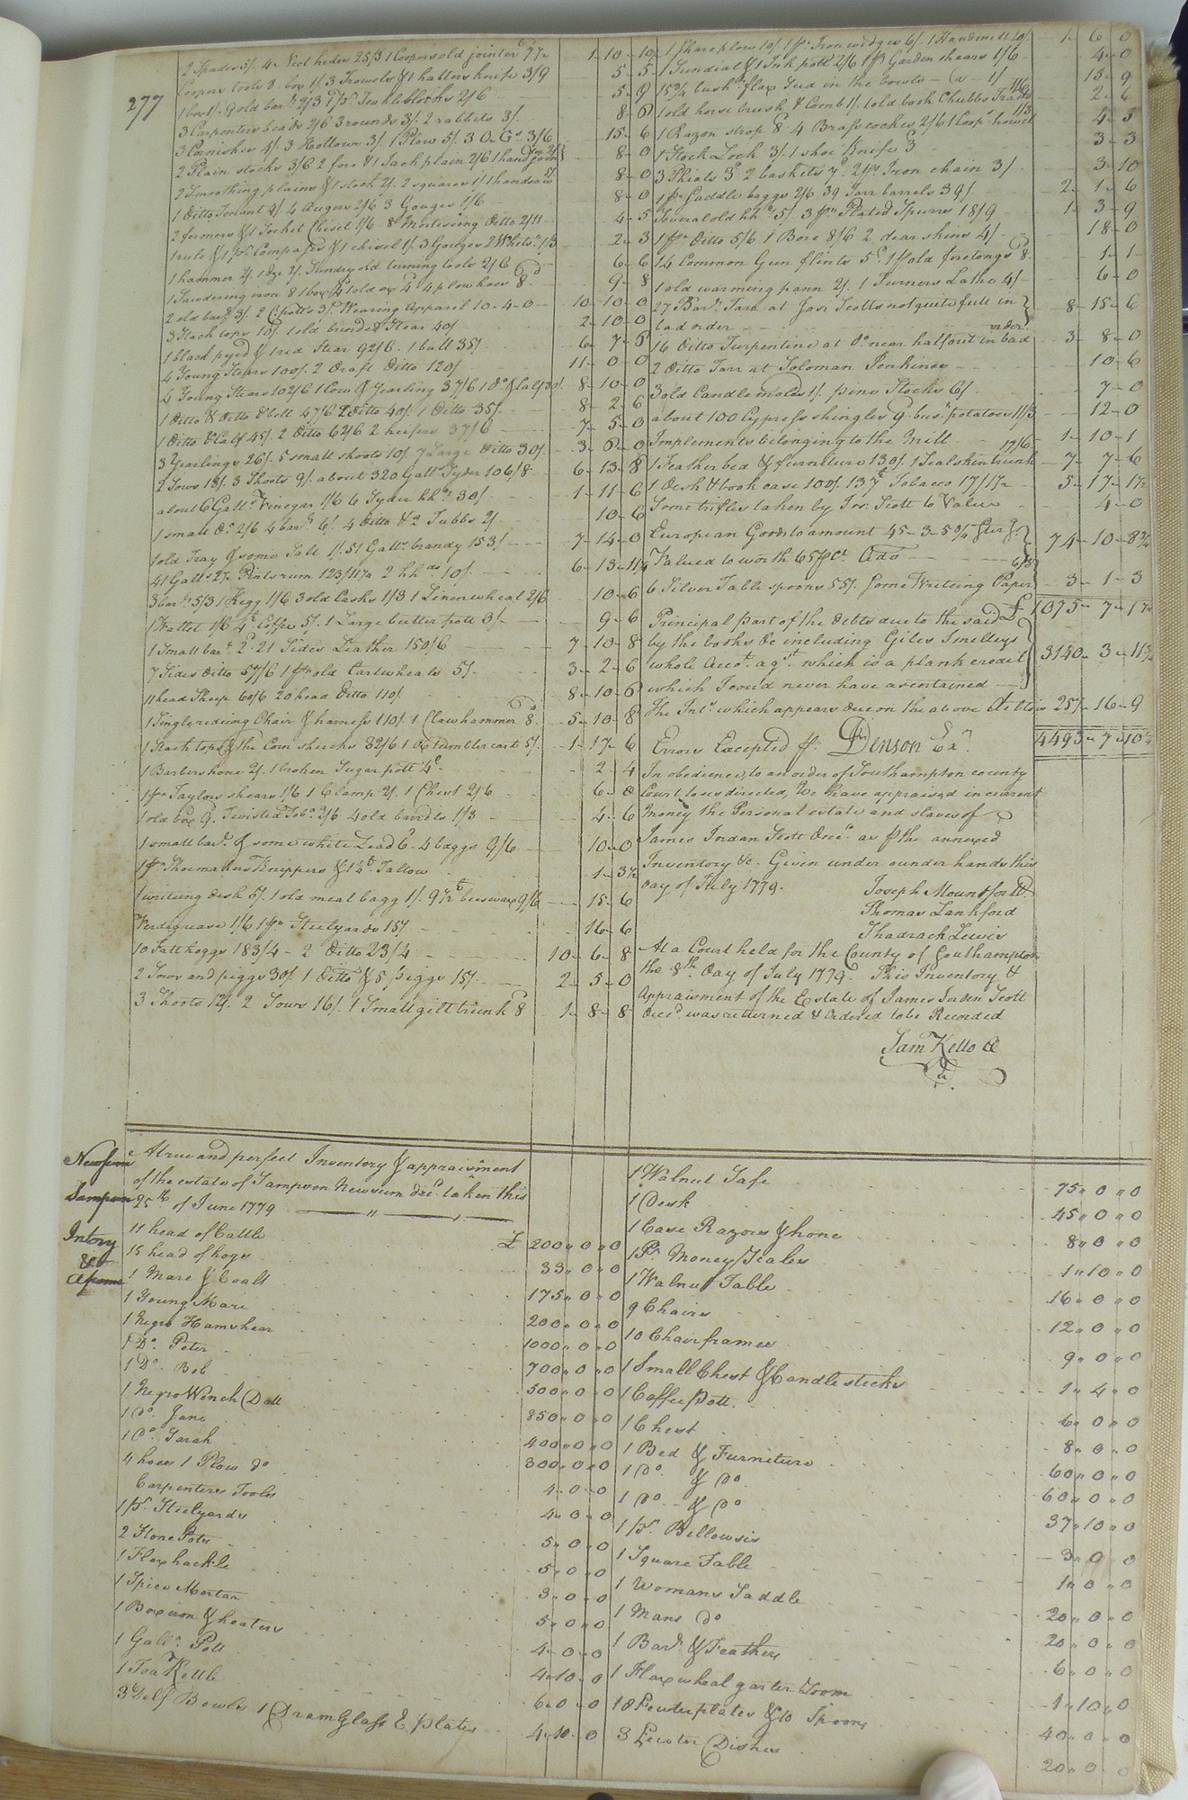 277
2 Spades 5/. 4 Neet hides 25/3 1 Coopers old jointer 1 - 10 - 10
Coopers tools 8 box 1/. 3 Trowels & 1 hatters knife 3/9 5 - 5
1 box 1/. 9 old bar 2/3 1 pr Tackle blocks 2/6 5 - 9
3 Carpenters beads 2/6 3 rounds 3/. 2 rabbits 3/. 8 - 6
3 Cornishes 4/. 3 Hollows 3/. 1 Plow 5/. 3 O.Gs 3/6 15 - 6
2 Plain stocks 3/6 2 fore & 1 Jack plain 2/6 1 hand 8 - 0
2 Smoothing plains & 1 stock 2/. 2 squares 1/. 1 handsaw 8 - 0
1 Ditto Tenant 4/. 4 Augers 2/6 3 Gouges 1/6 8 - 0
2 formers & 1 Socket Chisel 1/6 8 Morticeing Ditto 2/11 4 - 5
1 rule & 1 pr Compasses & 1 chisel 1/. 3 Gouges 2 2 - 3
1 hammer 2/. 1 Adze 2/. Sundry old turning tools 2/6 6 - 6
1 Sawdering iron 8 1 box 4 old 4 plow hoes 9 - 8
2 old bar 3/. 2 potts 3/. Wearing Apparil 10 - 4 - 0 10 - 10 - 0
3 Stack tops 10/. 1 old brinded Stear 40/. 2 - 10 - 0
1 black pyed & 1 red Stear 92/6. 1 bull 35/. 6 - 7 - 6
4 Young Stears 100/. 2 Draft Ditto 120/. 11 - 0 - 0
4 Young Stears 102/6 1 Cow & Yearling 37/6 1 Do & Calf 8 - 10 - 0
1 Ditto & Ditto & bell 47/6 2 Ditto 40/. 1 Ditto 35/. 8 - 2 - 6
1 Ditto & Calf 45/. 2 Ditto 62/6 2 heifers 37/6 7 - 5 - 0
3 Yearlings 26/. 5 small shoots 10/. 7 Large Ditto 30/. 3 - 6 - 0
2 Sows 18/. 3 Shoots 9/. about 320 Galls Syder 106/8 6 - 13 - 8
about 6 Galls Vinegar 1/6 6 Syder hhds 30/. 1 - 11 - 6
1 small Do 2/6 4 bars 6/. 4 Ditto & 2 Tubbs 2/. 10 - 6
1 old Tray & some Salt 1/. 51 Galls brandy 153/. 7 - 14 - 0
41 Galls 2 1/2 Pints rum 123/11 1/2 2 hhds 10/. 6 - 13 - 11 1/2
3 bars 5/3 1 Kegg 1/6 3 old Casks 1/3 1 Linnen wheal 2/6 10 - 6
1 Wallet 1/6 4 Coffe 5/. 1 Large butter pott 3/. 9 - 6
1 Small bar 2 21 Sides Leather 150/6 7 - 10 - 8
7 Sides Ditto 57/6 1 pr old Cart wheals 5/. 3 - 2 - 6
11 head Sheep 60/6 20 head Ditto 110/. 8 - 10 - 6
1 Single rideing Chair & harness 110/. 1 Claw hammer 8. 5 - 10 - 8
1 Stack tops & the Corn shucks 32/6 1 Ox tumbler cart 5/. 1 - 17 - 6
1 Barbers hone 2/. 1 broken Sugar pott 4 2 - 4
1 pr Taylors shears 1/6 1 Clamp 2/. 1 Chest 2/6 6 - 0
1 old box 9. Twisted Tobo 2/6 4 old bands 1/3 4 - 6
1 small bar of some white Lead 6. 4 baggs 9/6 10 - 0
1 pr Shoemakers Knippers & 1 1/2 Tallow 1 - 3 1/2
1 writing desk 6/. 1 old meal bagg 1/. 9 1/2 beeswax 9/6 15 - 6
Verdigrease 1/6 1 pr Steelyards 15/. 16 - 6
10 Fatt hoggs 183/4 - 2 Ditto 23/4 10 - 6 - 8
2 Sows and piggs 30/. 1 Ditto & 5 Piggs 15/. 2 - 5 - 0
3 Shoots 12/. 2 Sows 16/. 1 Small gilt trunk 8 1 - 8 - 8
1 Share plow 10/. 1 pr Iron wedges 6/. 1 Handmill 10/. 1 - 6 - 0
1 Sundial & 1 Ink pott 2/6 1 pr Garden shears 1/6 4 - 0
15 3/4 bushs flax seed in the bowls - @ - 1/ 15 - 9
1 old horse brush & Comb 1/. 1 old book Chubbs Tracts 2 - 6
1 Razon strop 8. 4 Brass cockes 2/6 1 Coopr howel 4 - 5
1 Stock Lock 3/. 1 shoe Knife 3 3 - 3
3 Phials 3 2 baskets 7 2 prs Iron chain 3/. 3 - 10
1 pr Saddle baggs 2/6 39 Tarr barrels 39/. 2 - 1 - 6
Several old hhds 5/ 3 prs Plated Spurrs 18/9 1 - 3 - 9
1 pr Ditto 5/6 1 Bore 8/6 2 dear skins 4/. 18 - 0
14 Common Gun flints 5 1 old firetongs 8. 1 - 1
1 old warming pann 2/. 1 Turners Lathe 4/. 6 - 0
27 Bars Tarr at Josi Scotts not quite full in } 8 - 15 - 6
bad order
16 Ditto Turpentine at Do near half out in bad order 3 - 8 - 0
2 Ditto Tarr at Solomon Jenkins 10 - 6
3 old Candle molds 1/. pine Stocks 6/. 7 - 0
about 100 Cypress shingles 9. bus potatoes 11/3 12 - 0
Implements belonging to the Mill 1 - 10 - 1
1 Feather bed & furniture 130/. 1 Seal skin trunk 17/6 7 - 7 - 6
1 Desk & book case 100/. 137 Tobacco 17/1 1/2 5 - 17 - 1 1/2
Some trifles taken by Jos: Scott to Value 4 - 0
European Goods to amount 45 - 3 - 5 3/4 Sterlg }
Valued to worth 65 pCt Ado } 74 - 10 - 8 3/4
6 Silver Table spoons 55/. some Writeing Paper 6/3 3 - 1 - 3
£ 1075 - 7 - 1 1/2
Principal part of the debts due to the said
by the books &c including Giles Smelleys
whole Accot agst which is a plank credit 3140 - 3 - 11 3/4
which I cou'd never have ascertained
The Intt which appears due on the above debts 257 - 16 - 9
Errors Excepted pr Jn Denson Exr 4493 - 7 - 10
In obedience to an order of Southampton county
Court to us directed, We have appraised in current
money the Personal estate and slaves of
James Indan Scott Decd as pr the annexed
Inventory &c. Given under under hands this
day of July 1779.
Joseph Mountfortt
Thomas Lankford
Shadrach Lewis
At a Court held for the County of Southampton
the 8th Day of July 1779 This Inventory &
Appraisment of the Estate of James Jordan Scott
Decd was returned & Ordered to be Recorded
Sam Kello Cl
Newsum
Sampson
Intory
&c
A true and perfect Inventory & appraisment
of the estate of Sampson Newsum decd taken this
25th of June 1779
11 head of Cattle £ 200 " 0 " 0
15 head of hogs 33 " 0 " 0
1 Mare & Coalt 175 " 0 " 0
1 Young Mare 200 " 0 " 0
1 Negro Hamshear 1000 " 0 " 0
1 Do. Peter 700 " 0 " 0
1 Do. Bob 500 " 0 " 0
1 Negro Winch Doll 850 " 0 " 0
1 Do. Jane 400 " 0 " 0
1 Do. Sarah 300 " 0 " 0
4 hoes 1 Plow do 4 " 0 " 0
Carpenters Tools 4 " 0 " 0
1 pr Stilyards 5 " 0 " 0
2 Stone Pots 5 " 0 " 0
1 Flax hackle 3 " 0 " 0
1 Spice Mortar 5 " 0 " 0
1 Box iron & heaters 4 " 0 " 0
1 Gall. Pott 4 " 10 " 0
1 Tea Kettle 6 " 0 " 0
3 Delf Bowls 1 Dram Glass & plates 4 " 10 " 0
1 Walnut Safe 75 " 0 " 0
1 Desk 45 " 0 " 0
1 Case Razors & hone 8 " 0 " 0
1 Pr Money Scales 1 " 10 " 0
1 Walnut Table 16 " 0 " 0
9 Chairs 12 " 0 " 0
10 Chair frames 9 " 0 " 0
1 Small Chest & Candlesticks 1 " 4 " 0
1 Coffee Pott 6 " 0 " 0
1 Chest 8 " 0 " 0
1 Bed & Furniture 60 " 0 " 0
1 Do & Do 60 " 0 " 0
1 Do & Do 37 " 10 " 0
1 pr Bellowsis 3 " 0 " 0
1 Square Table 1 " 0 " 0
1 Womans Saddle 20 " 0 " 0
1 Mans do 20 " 0 " 0
1 Barl & Feathers 6 " 0 " 0
1 Flax wheal garter Loom 1 " 10 " 0
18 Pewter plates & 10 Spoons 40 " 0 " 0
3 Pewter Dishes 20 " 0 " 0